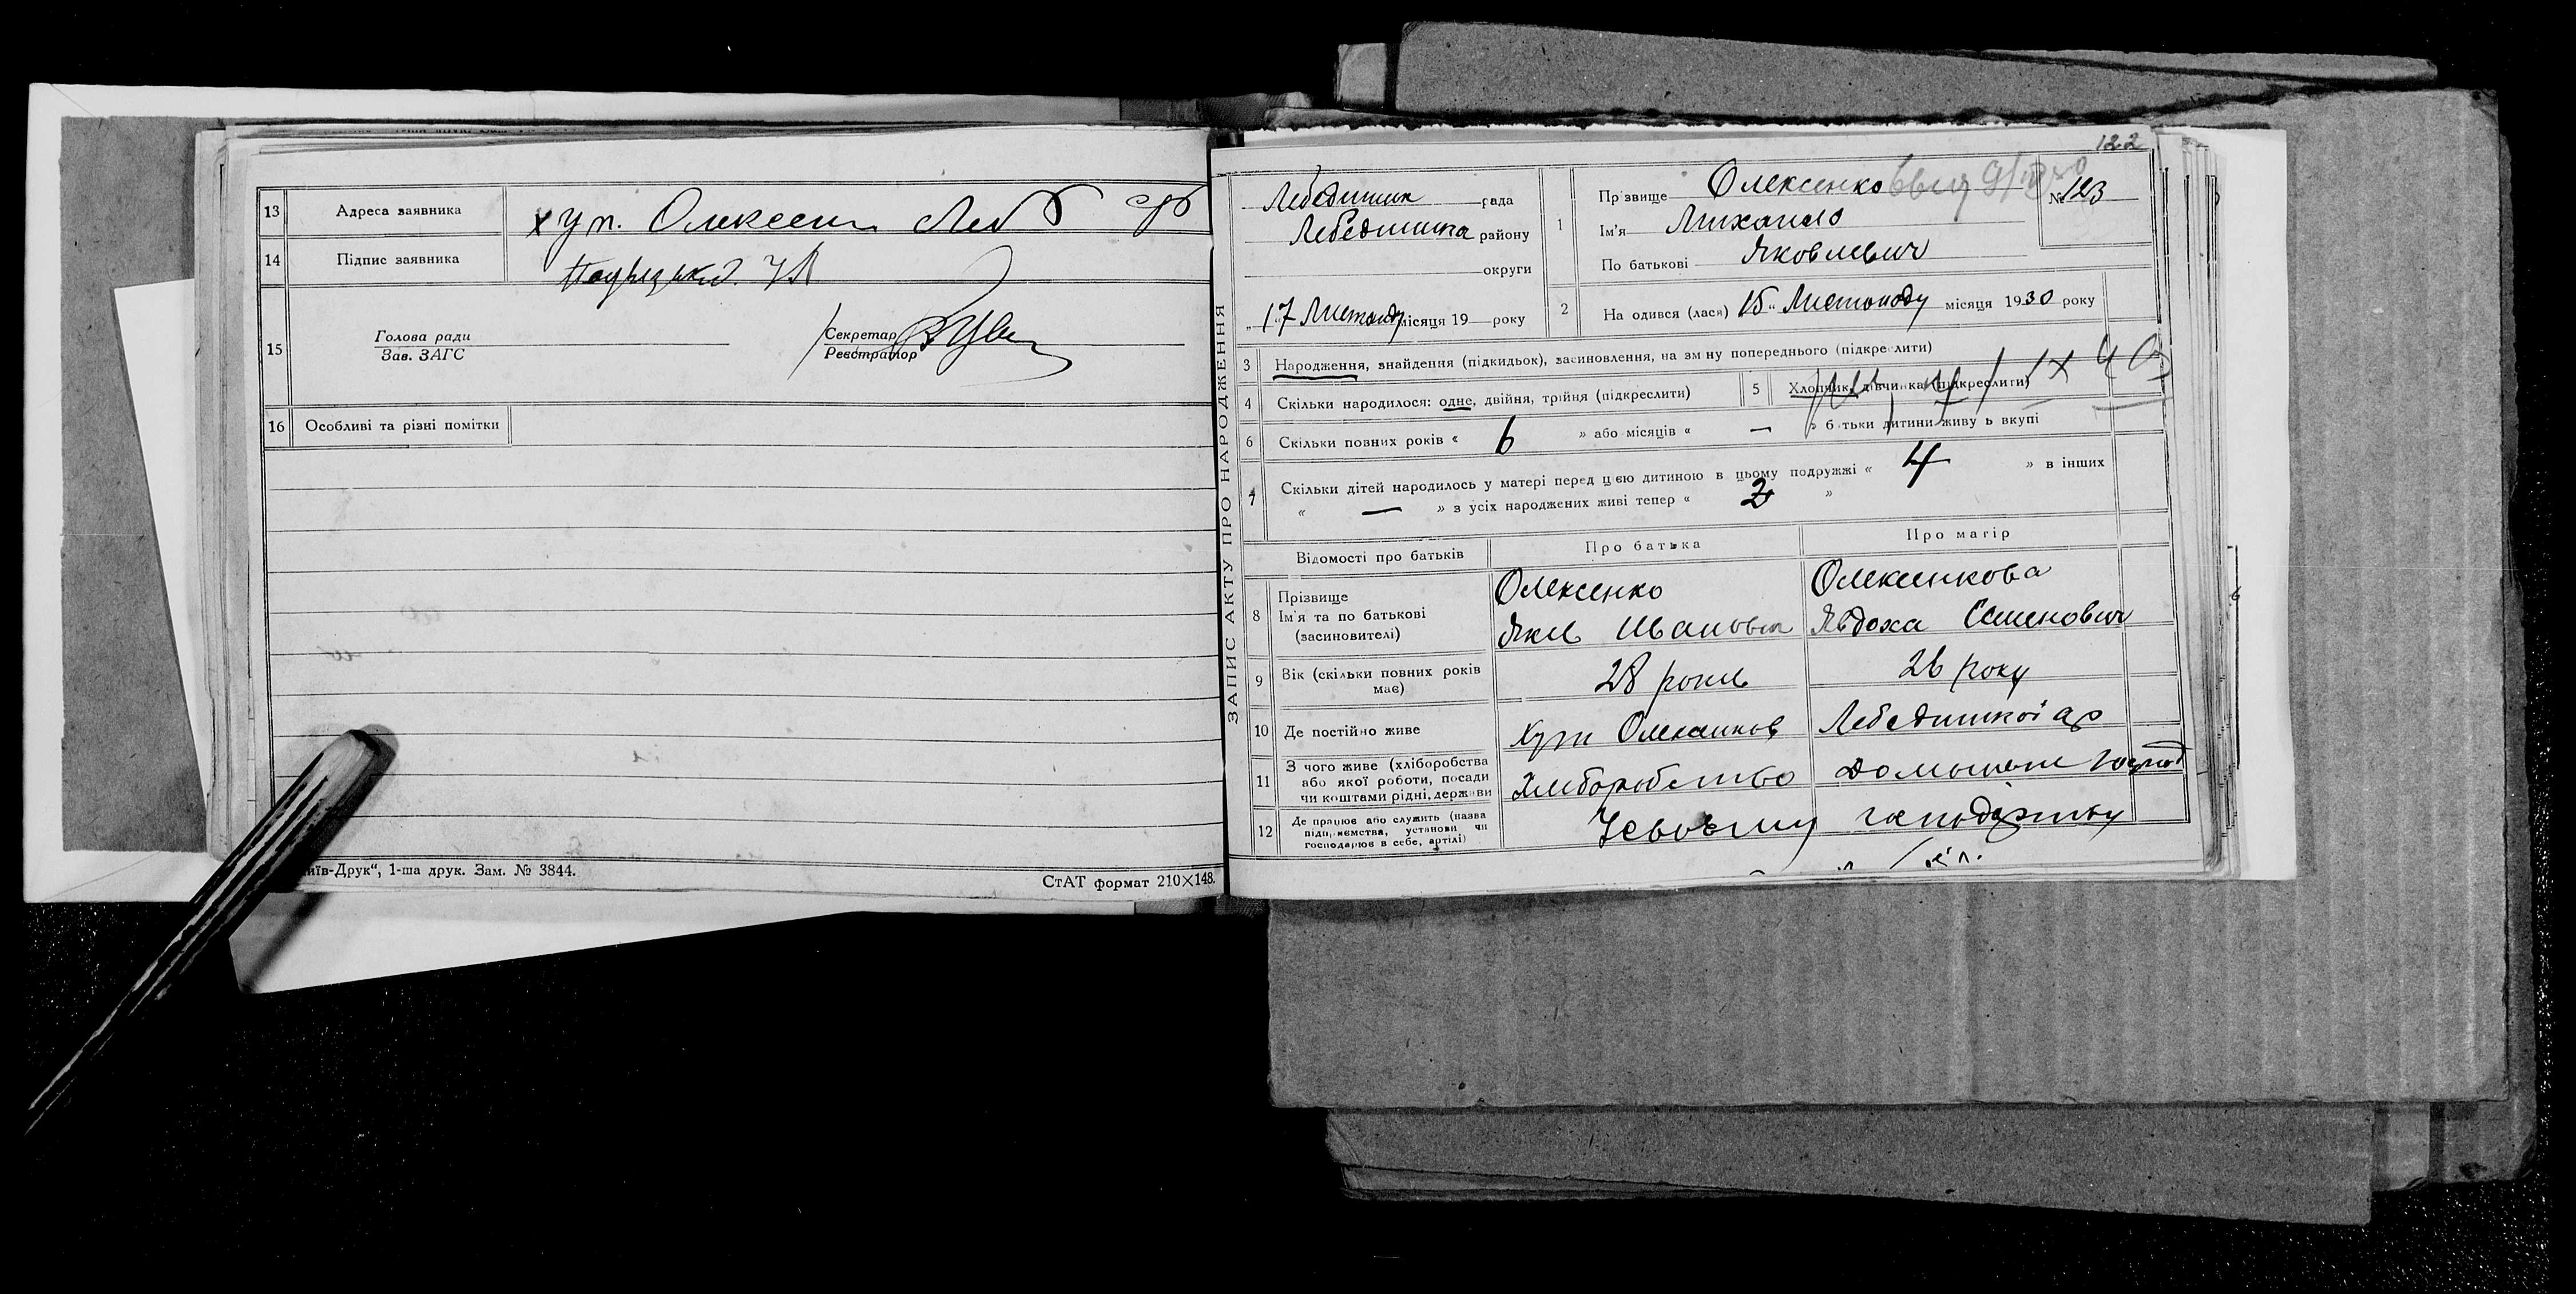 13 Адреса заявника хут. Олексен Леб
14 Підпис заявника
15 Голова ради Секретар
Зав. ЗАГС Реєстратор
16 Особливі та різні помітки
иїв-Друк“, 1-ша друк. Зам. № 3844.
СтАТ формат 210×148.
122
ЗАПИС АКТУ ПРО НАРОДЖЕННЯ
рада
району
округи
17 Листопаду місяця 19 року
1 Прізвище Олексенко
№ 123
Ім'я Михайло
По батькові Яковлевич
2 На одився (лася) 15 „ Листопаду місяця 1930 року
3 Народження, знайдення (підкидьок), засиновлення, на зм ну попереднього (підкреслити)
4 Скільки народилося: одне, двійня, трійня (підкреслити) 5 Хлопчик, дівчинка (підкреслити)
6 Скільки повних років « 6 » або місяців « — » б тьки дитини живу ь вкупі
7 Скільки дітей народилось у матері перед цією дитиною в цьому подружжі « 4 » в інших
« — » з усіх народжених живі тепер « 2 »
Відомості про батьків Про батька Про матір
8 Прізвище Олексенко Олексенкова
Ім'я та по батькові
(засиновителі) Яків Іванович Явдоха Семенович
9 Вік (скільки повних років 28 років 26 року
має)
10 Де постійно живе Хут Олексенков
11 З чого живе (хліборобства
або якої роботи, посади
чи коштами рідні, держави Хліборобство
12 Де працює або служить (назва
підприємства, установи чи
господарює в себе, артілі)